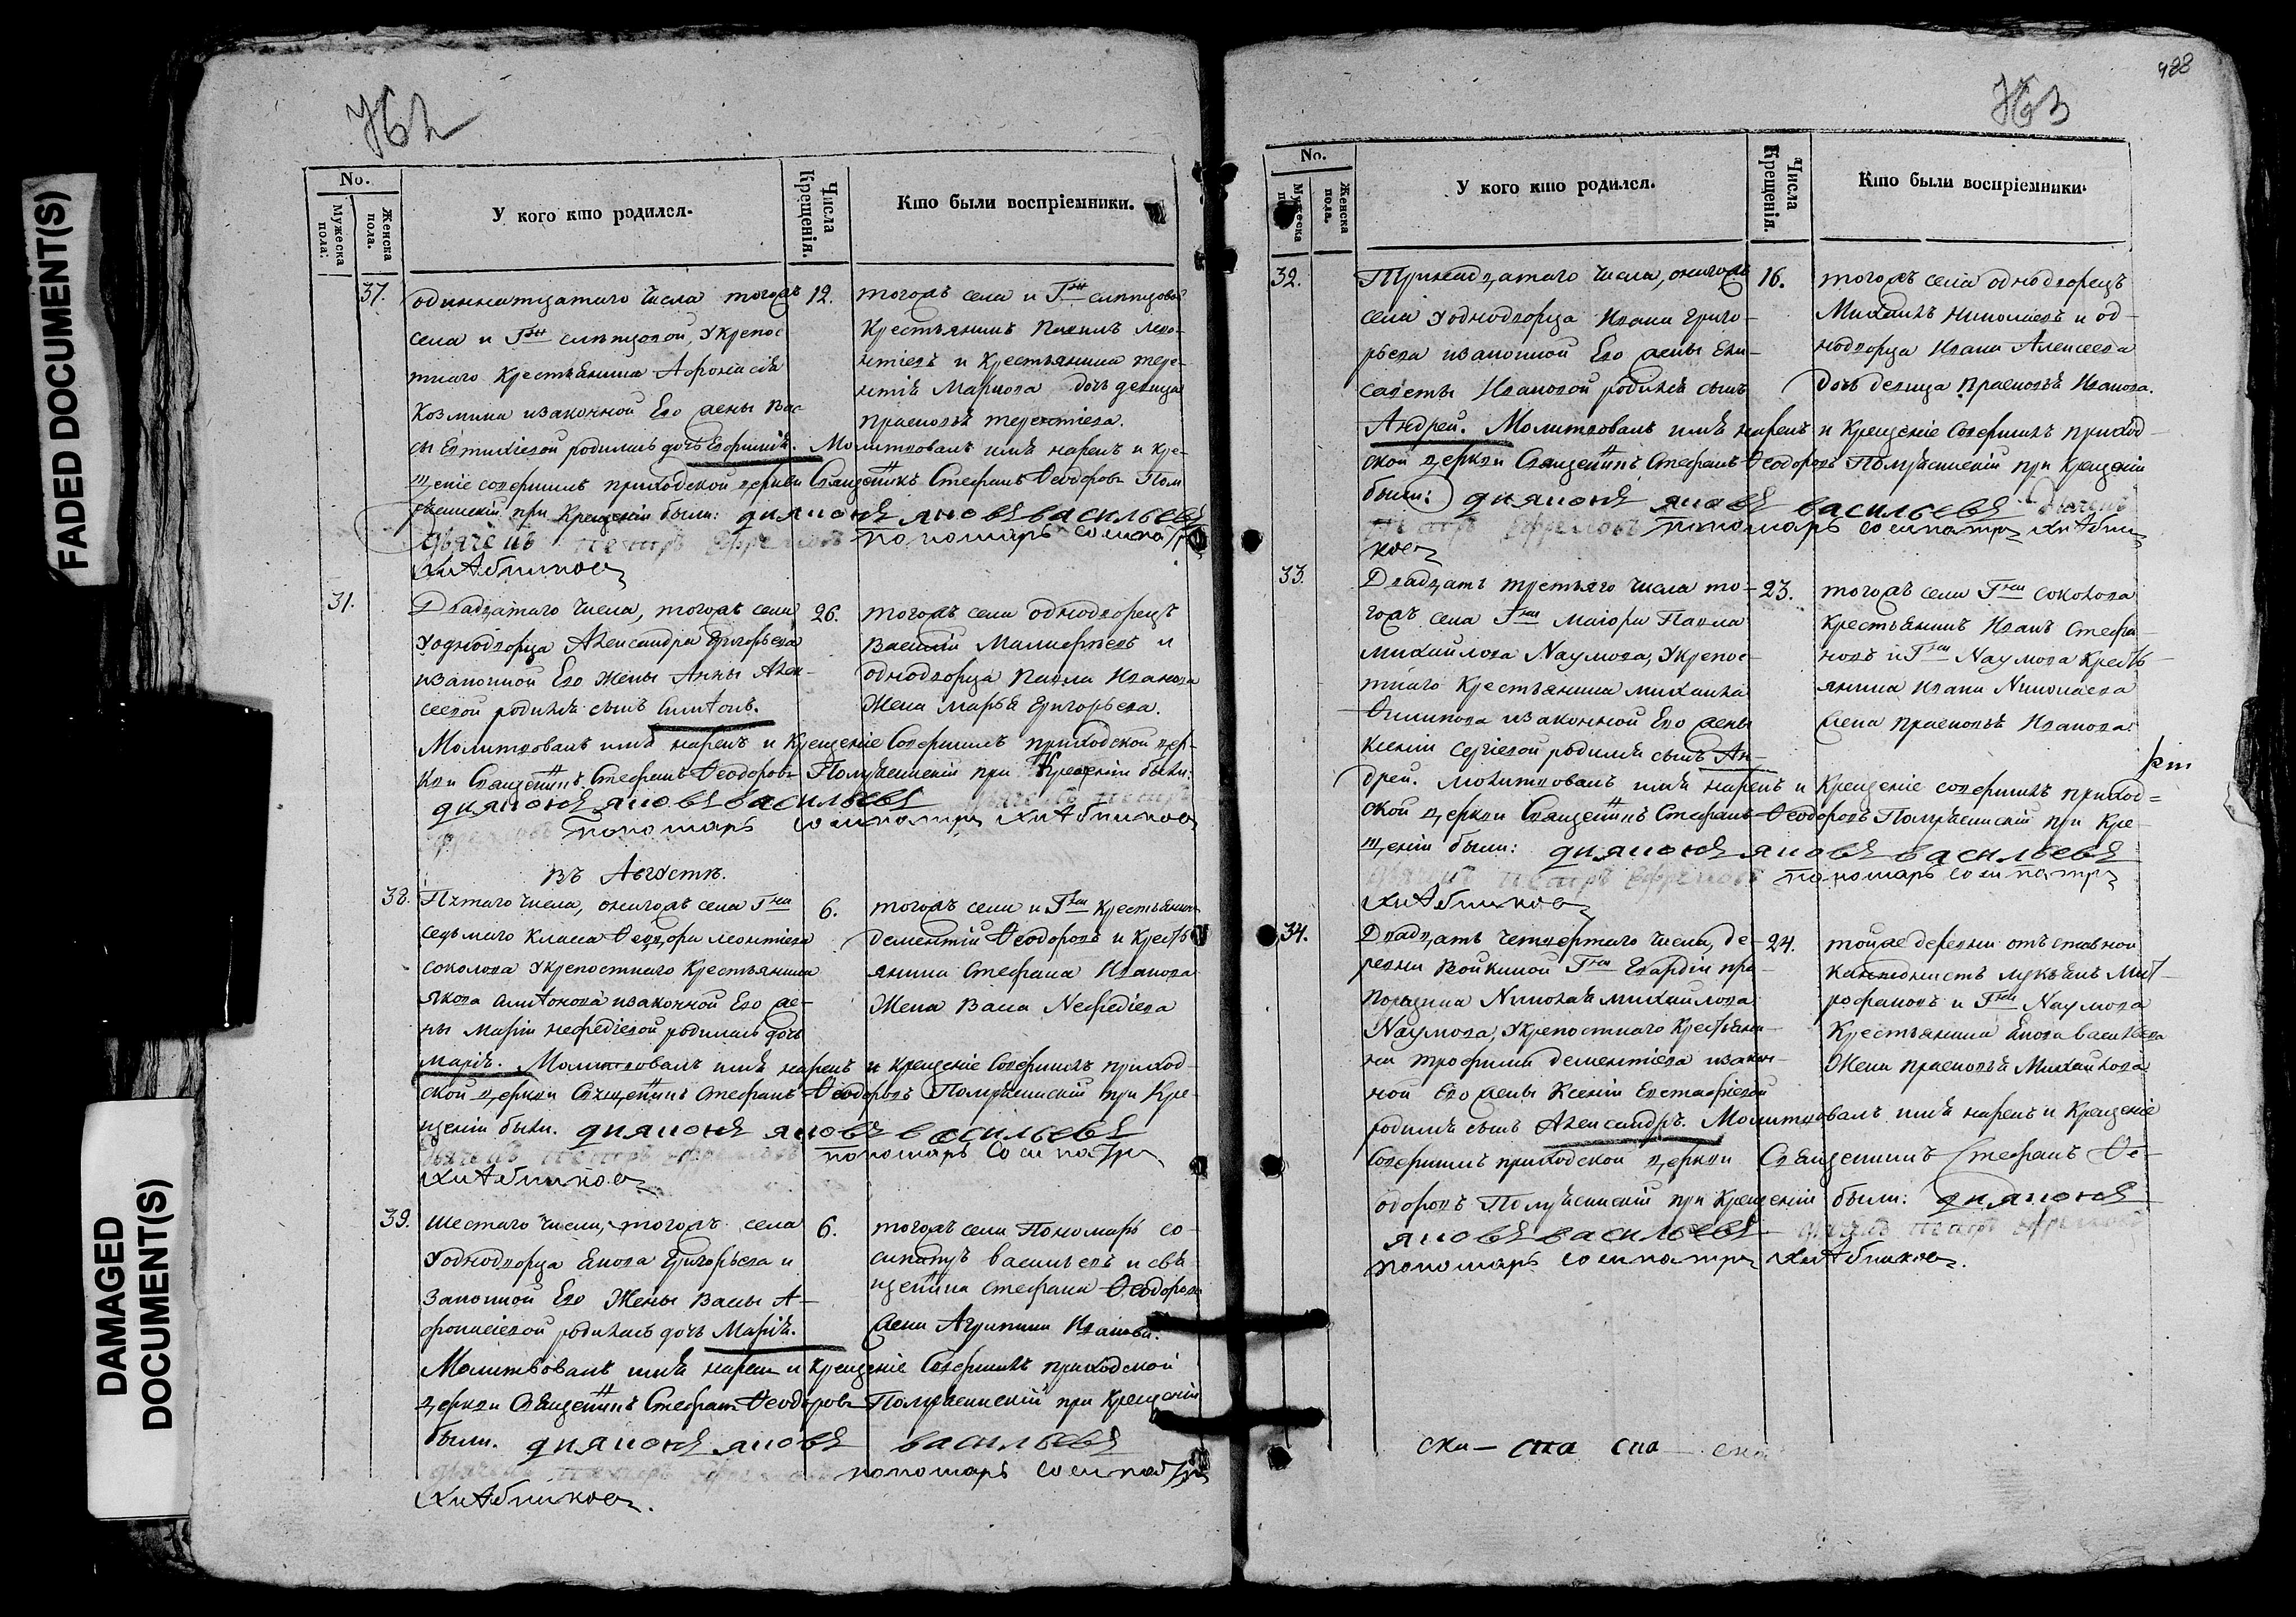 FADED DOCUMENT(S)
DAMAGED
DOCUMENT(S)
762
No.
Мужеска пола.
Женска пола.
У кого кто родился.
Числа Крещенія.
Кто были воспріемники.
37.
одиннатцатаго числа тогожъ
села и Гжи слепцовой, У крепос
тнаго крестьянина Афонасія
Козмина изаконной Его жены Вас
сы Евтихіевой родилась дочь Евфимія. Молитвовалъ имя нарекъ и кре-
щеніе совершилъ приходской церкви Священникъ Стефанъ Ѳеодоровъ
при Крещеніи были: дияконя яковя васильевя
дьячекъ петръ ефремовъ пономарь сосипатръ
12.
тогожъ села и Гжи слепцовой
Крестьянинъ
и Крестьянина тере-
дочь девица
прасковья терентіева.
31.
Двадцатаго числа, тогожъ села
У однодворца Александра Григорьева
изаконной Его жены Анны Алек-
сеевой родился сынъ Антонъ.
Молитвовалъ имя нарекъ и Крещеніе Совершилъ приходской цер-
кви Священникъ Стефанъ Ѳеодоровъ при Крещеніи были:
дияконя яковя васильевя дьячекъ петръ
ефремовъ пономарь сосипатръ
26.
тогожъ села однодворецъ
Василій и
однодворца Павла Иванова
Жена Марья Григорьева.
въ Августе.
38.
Пятаго числа, онагожъ села Гна
седьмаго класса Ѳеодора леонтіева
соколова У крепостнаго Крестьянина
якова Антонова изаконной Его же-
ны Маріи нефедіевой родилась дочь
марія. Молитвовалъ имя нарекъ и крещеніе Совершилъ приход-
ской церкви Священникъ Стефанъ Ѳеодоровъ при Кре-
щеніи были. дияконя яковя васильевя
дьячекъ петръ ефремовъ пономарь сосипатръ
6.
тогожъ села и Гна Крестьянинъ
дементій Ѳеодоровъ и Кресть
янина Стефана Иванова
Жена Васса Нефедіева
39.
Шестаго числа, тогожъ села
У однодворца Якова Григорьева и
Законной Его Жены Вассы А-
фонасіевой родилась дочь Марія.
Молитвовалъ имя нарекъ и крещеніе Совершилъ приходской
церкви Священникъ Стефанъ Ѳеодоровъ при Крещеніи
были. дияконя яковя васильевя
дьячекъ петръ ефремовъ пономарь сосипатръ
6.
тогожъ села Пономарь со-
сипатръ васильевъ и свя
щенника Стефана Ѳеодорова
жена Агрипина Иванова.
488
763
No.
Мужеска пола.
Женска пола.
У кого кто родился.
Числа Крещенія.
Кто были воспріемники.
32.
Тринадцатаго числа, онагожъ
села У однодворца Ивана Григо-
рьева изаконной Его жены Ели-
саветы Ивановой родился сынъ
Андрей. Молитвовалъ имя нарекъ и Крещеніе Совершилъ приход-
ской церкви Священникъ Стефанъ Ѳеодоровъ при Крещеніи
были: дияконя яковя васильевя дьячекъ
петръ ефремовъ пономарь сосипатръ
16.
тогожъ села однодворецъ
Михаилъ Николаевъ и од-
нодворца Ивана Алексеева
дочь девица прасковья Иванова.
33.
Двадцать третьяго числа то-
гожъ села Гна Маіора Павла
михайлова Наумова, У крепос-
тнаго Крестьянина михаила
Филипова изаконной Его жены
Ксеніи Сергіевой родился сынъ Ан-
дрей. молитвовалъ имя нарекъ и Крещеніе совершилъ приход=
ской церкви Священникъ Стефанъ Ѳеодоровъ при Кре-
щеніи были: дияконя яковя васильевя
дьячекъ петръ ефремовъ пономарь сосипатръ
23.
тогожъ села Гна соколова
Крестьянинъ Иванъ Стефа-
новъ и Гна Наумова Кресть-
янина Ивана Николаева
жена прасковья Иванова.
34.
Двадцать четвертаго числа, де-
ревни Войкиной Гна Гвардіи пра-
порщика Николая михайлова
Наумова, У крепостнаго Крестьяни-
на трофима дементіева изакон-
ной Его жены Ксеніи Евстафіевой
родился сынъ Александръ. Молитвовалъ имя нарекъ и Крещеніе
Совершилъ приходской церкви Священникъ Стефанъ Ѳе-
одоровъ при Крещеніи были: дияконя
яковя васильевя дьячекъ петръ ефремовъ
пономарь сосипатръ
24.
тойже деревни отставной
кантонистъ лукьянъ Мит-
рофановъ и Гна Наумова
Крестьянина Якова васильева
Жена прасковья Михайлова
ска— ска ска ска